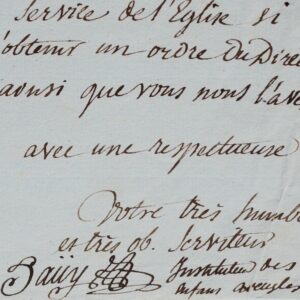 Service de l'Eglise si
obtenir un ordre Du Direc
ainsi que vous nous l'ave
avec une respectueuse
Votre très humb
et très ob. Serviteur
Haüy Instituteur des
enfans aveugles